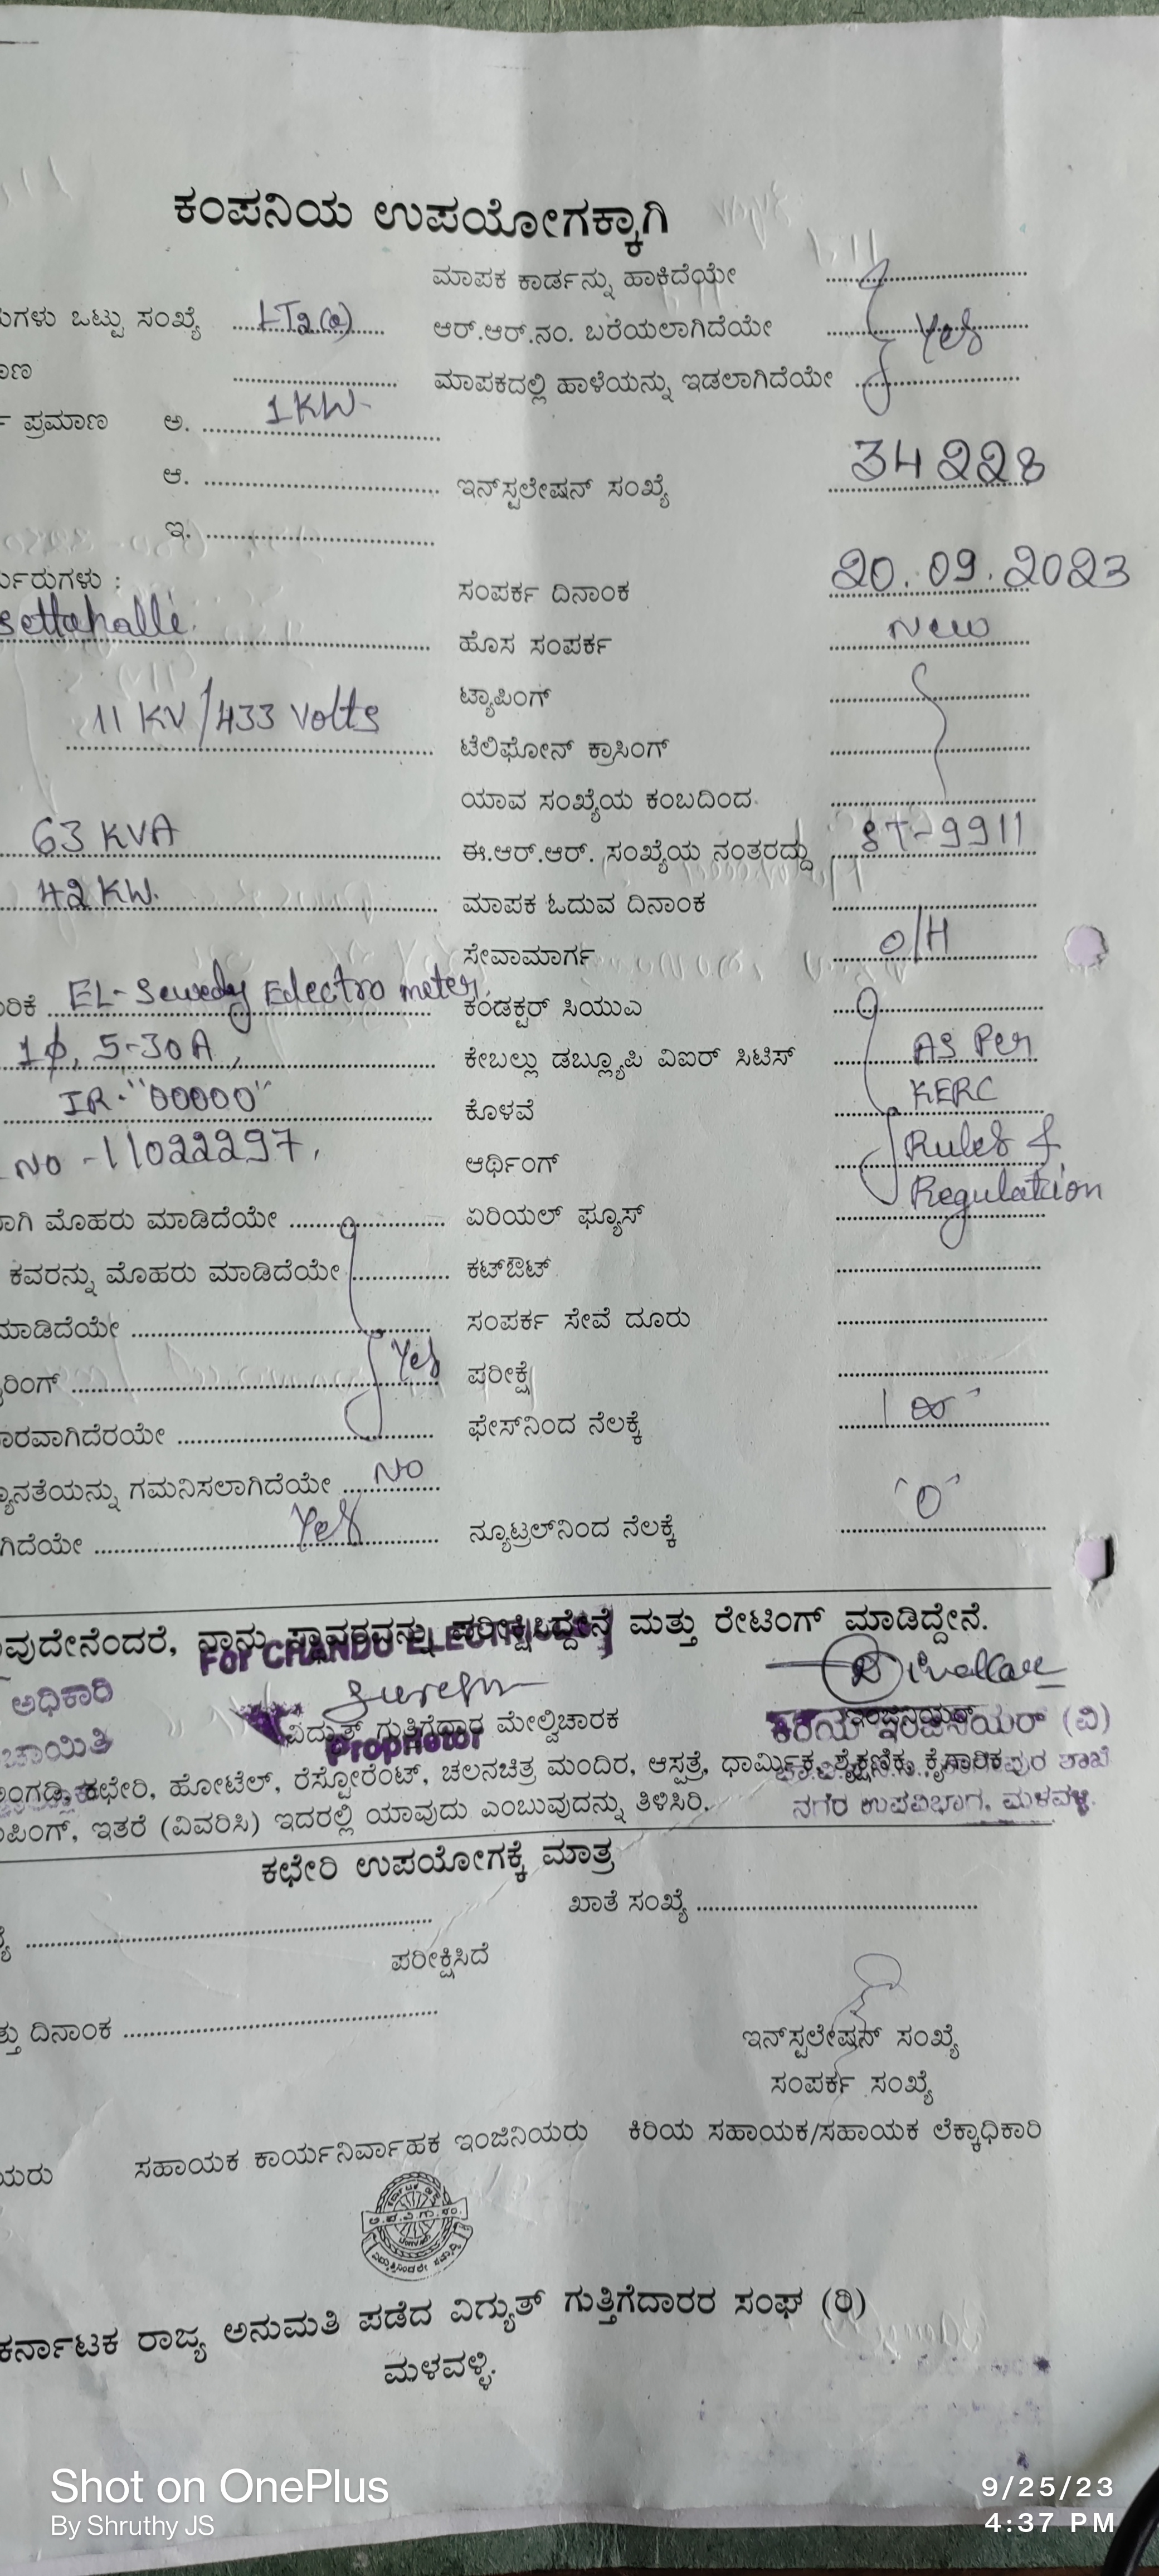 ಕಂಪನಿಯ ಉಪಯೋಗಕ್ಕಾಗಿ
ಮಾಪಕ ಕಾರ್ಡನ್ನು ಹಾಕಿದೆಯೇ
ಗಳು ಒಟ್ಟು ಸಂಖ್ಯೆ LT2(a) ಆರ್.ಆರ್.ನಂ. ಬರೆಯಲಾಗಿದೆಯೇ Yes
ಮಾಪಕದಲ್ಲಿ ಹಾಳೆಯನ್ನು ಇಡಲಾಗಿದೆಯೇ
ಪ್ರಮಾಣ ಅ. 1KW
ಆ. ಇನ್‌ಸ್ಟಲೇಷನ್ ಸಂಖ್ಯೆ 34228
ಇ.
ಸಂಪರ್ಕ ದಿನಾಂಕ 20.09.2023
settahalli ಹೊಸ ಸಂಪರ್ಕ New
11 KV/433 Volts ಟ್ಯಾಪಿಂಗ್
ಟೆಲಿಫೋನ್ ಕ್ರಾಸಿಂಗ್
ಯಾವ ಸಂಖ್ಯೆಯ ಕಂಬದಿಂದ
63 KVA ಈ.ಆರ್.ಆರ್. ಸಂಖ್ಯೆಯ ನಂತರದ್ದು ST-9911
42 KW. ಮಾಪಕ ಓದುವ ದಿನಾಂಕ
ಸೇವಾಮಾರ್ಗ O/H
EL-Sewedy Electro meter, ಕಂಡಕ್ಟರ್ ಸಿಯುಎ
1ϕ, 5-30A, ಕೇಬಲ್ಲು ಡಬ್ಲ್ಯೂಪಿ ವಿಐರ್ ಸಿಟಿಸ್ AS Per
IR-"00000" ಕೊಳವೆ KERC
NO-11022297, ಆರ್ಥಿಂಗ್ Rules &
ಾಗಿ ಮೊಹರು ಮಾಡಿದೆಯೇ ಏರಿಯಲ್ ಫ್ಯೂಸ್ Regulation
ಕವರನ್ನು ಮೊಹರು ಮಾಡಿದೆಯೇ ಕಟ್‌ಔಟ್
ಮಾಡಿದೆಯೇ ಸಂಪರ್ಕ ಸೇವೆ ದೂರು
ರಿಂಗ್ Yes ಪರೀಕ್ಷೆ
ಾರವಾಗಿದೆರಯೇ ಫೇಸ್‌ನಿಂದ ನೆಲಕ್ಕೆ
್ಯಾನತೆಯನ್ನು ಗಮನಿಸಲಾಗಿದೆಯೇ NO
ಗಿದೆಯೇ Yes ನ್ಯೂಟ್ರಲ್‌ನಿಂದ ನೆಲಕ್ಕೆ "0"
ವುದೇನೆಂದರೆ, ನಾನು ಸ್ಥಾವರವನ್ನು ಪರೀಕ್ಷಿಸಿದ್ದೇನೆ ಮತ್ತು ರೇಟಿಂಗ್ ಮಾಡಿದ್ದೇನೆ.
For CHANDU ELECTRICALS
ಅಧಿಕಾರಿ
ವಿದ್ಯುತ್ ಗುತ್ತಿಗೆದಾರ ಮೇಲ್ವಿಚಾರಕ
Proprietor
ಕಿರಿಯ ಇಂಜಿನಿಯರ್ (ವಿ)
ಅಂಗಡಿ, ಕಛೇರಿ, ಹೋಟೆಲ್, ರೆಸ್ಟೋರೆಂಟ್, ಚಲನಚಿತ್ರ ಮಂದಿರ, ಆಸ್ಪತ್ರೆ, ಧಾರ್ಮಿಕ, ಶೈಕ್ಷಣಿಕ, ಕೈಗಾರಿಕ
ಪಿಂಗ್, ಇತರೆ (ವಿವರಿಸಿ) ಇದರಲ್ಲಿ ಯಾವುದು ಎಂಬುವುದನ್ನು ತಿಳಿಸಿರಿ.
ನಗರ ಉಪವಿಭಾಗ, ಮಳವಳ್ಳಿ.
ಕಛೇರಿ ಉಪಯೋಗಕ್ಕೆ ಮಾತ್ರ
ಖಾತೆ ಸಂಖ್ಯೆ
ಪರೀಕ್ಷಿಸಿದೆ
ತ್ತು ದಿನಾಂಕ
ಇನ್‌ಸ್ಟಲೇಷನ್ ಸಂಖ್ಯೆ
ಸಂಪರ್ಕ ಸಂಖ್ಯೆ
ಯರು ಸಹಾಯಕ ಕಾರ್ಯನಿರ್ವಾಹಕ ಇಂಜಿನಿಯರು ಕಿರಿಯ ಸಹಾಯಕ/ಸಹಾಯಕ ಲೆಕ್ಕಾಧಿಕಾರಿ
ಕರ್ನಾಟಕ ರಾಜ್ಯ ಅನುಮತಿ ಪಡೆದ ವಿದ್ಯುತ್ ಗುತ್ತಿಗೆದಾರರ ಸಂಘ (ರಿ)
ಮಳವಳ್ಳಿ.
Shot on OnePlus
By Shruthy JS
9/25/23
4:37 PM